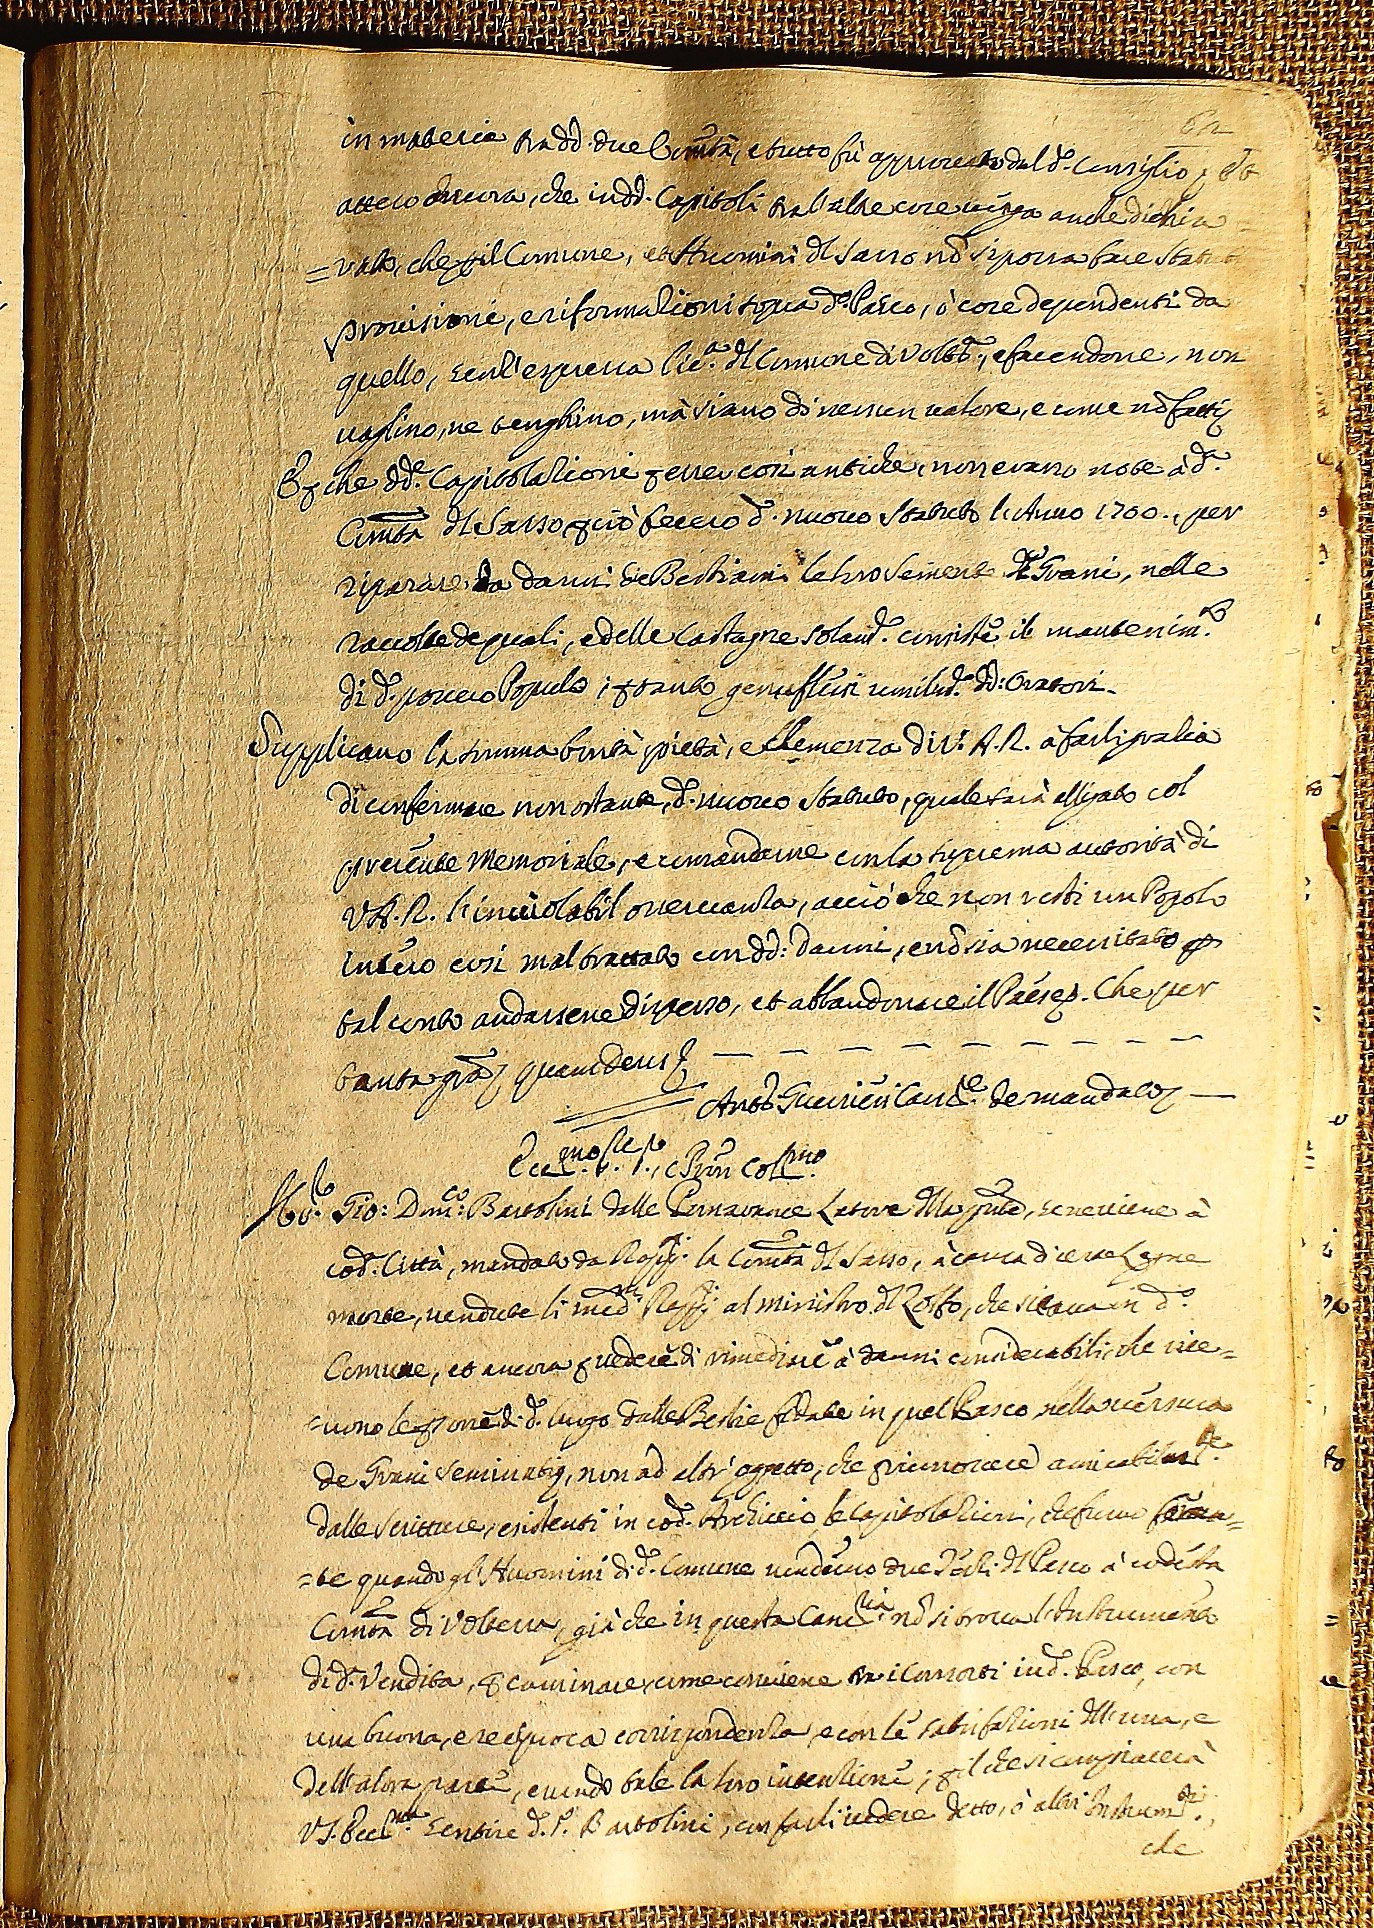 62
in materia tra dd. due Comtà, e tutto fù approvato dal d.o Consiglio
atteso ancora, che in dd. Capitoli tra l'altre cose venga anche dichia
= rato, che p il Comune, et Huomini dl Sasso nō si possa fare Statuti
provisioni, e riformazioni sopra d.o Pasco, ò cose dependenti da
quello, senz'espressa lic.a dl Comune di Volt.a, e facendone, non
vaglino, ne tenghino, mà siano di nessun valore, e come nō fatti
E p che dd.e Capitolazioni p esser così antiche, non erano note à d.a
Comtà dl Sasso p ciò feccio d. nuovo Statuto l'Anno 1700., per
riparare da danni de Bestiami le loro Semente de Grani, nelle
raccolte de quali, e delle Castagne solam.te consiste il mantenim.to
di d.o povero Popolo; p tanto genuflessi umilm.te dd: Oratori.
Supplicano la somma bontà, pietà, e clemenza di V. A. R. à farli grazia
di confermare non ostante, d. nuovo Statuto, quale sarà alligato col
presente Memoriale, e comandarne con la suprema autorità di
V. A. R. l'inviolabil osservanza, acciò che non resti un Popolo
intero così mal trattato con dd: danni, e nō sia necessitato p
tal conto andarsene disperso, et abbandonare il Paese. Che per
tanta grā quam Deus
Ant.o Guerrieri Canc.re de mandato
Ecc.mo Sig.re, e Pron Col.mo
Gio: Dom.co: Bartolini dalle Pomarance Latore dlla pnte, se ne viene à
cod.a Città, mandato da Rapp.ti la Comtà dl Sasso, à causa di certe Legne
morte, vendute li med.mi Rapp.ti al ministro dl Zolfo, che si cava in d.o
Comune, et ancora p vedere di rimediare à danni considerabili, che rice=
=vono le psone di d.o luogo dalle Bestie fidate in quel Pasco, nella
de Grani Seminati, non ad altr'oggetto, che p riconoscere amicabilm.te
dalle Scritture, esistenti in cod.o Archivio le Capitolazioni, che furno
=te quando gl'Huomini di d.o Comune venderno due dl Pasco à codesta
Comtà di Volterra, già che in questa Canc.ria nō si trova l'Instrumento
di d.a Vendita, p caminare, come conviene tra i Consorti in d. Pasco, con
una buona, e reciproca corrispondenza, e con le satisfazioni dll'una, e
dell'altra parte, essendo tale la loro intenzione; p il che si compiacerà
V. S. Ecc.ma sentire d. S.r Bartolini, con farli vedere detto, ò altri Instrum.ti,
che